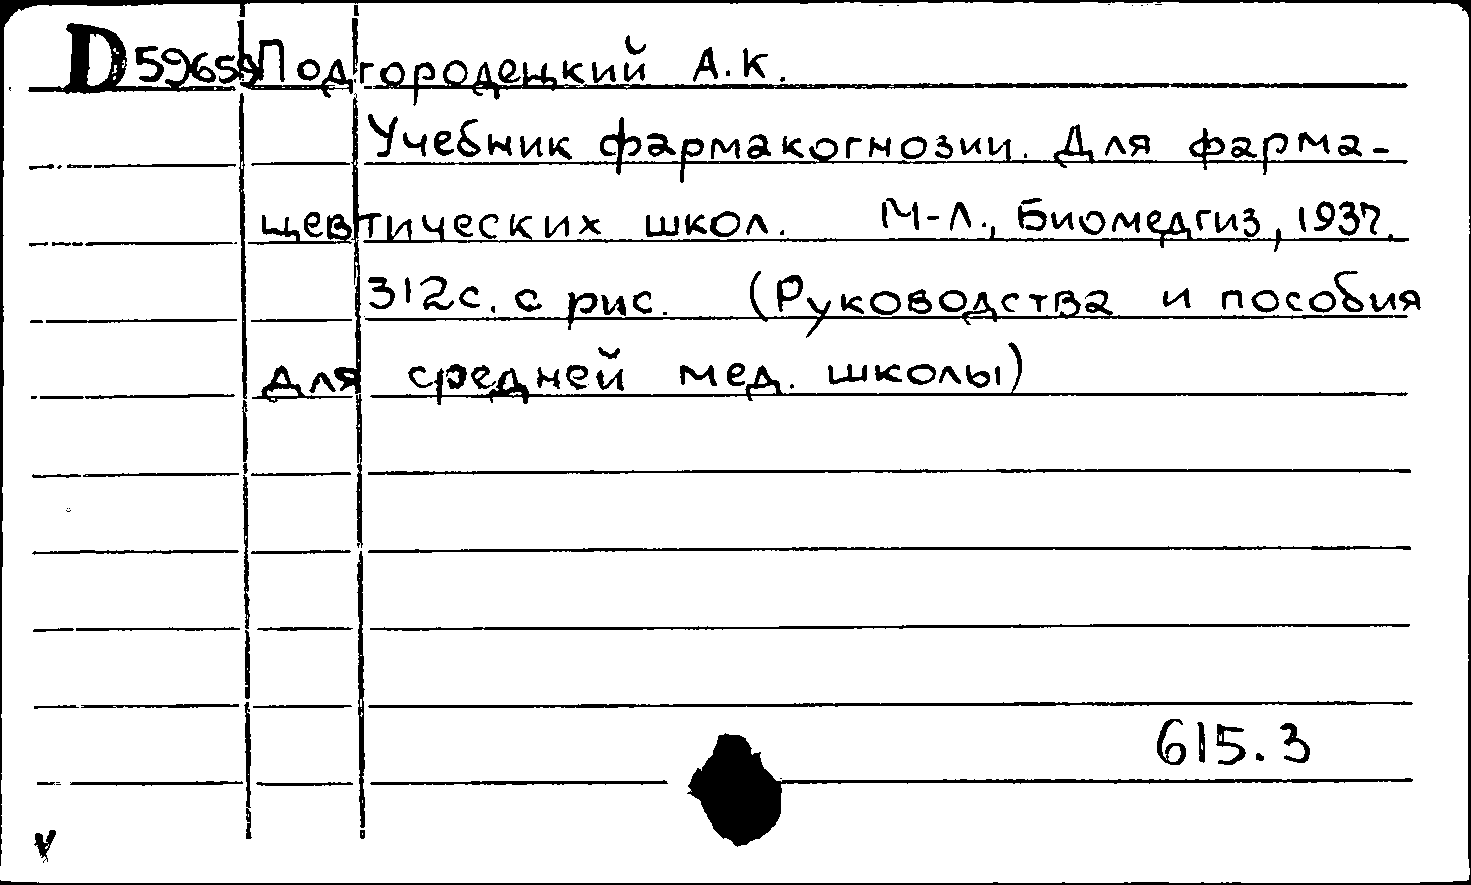 D59659 Подгородецкий А.К.
Учебник фармакогнозии. Для фарма-
цевтических школ. М-Л., Биомедгиз, 1937.
312с. с рис. (Руководства и пособия
для средней мед. школы)
615.3
v